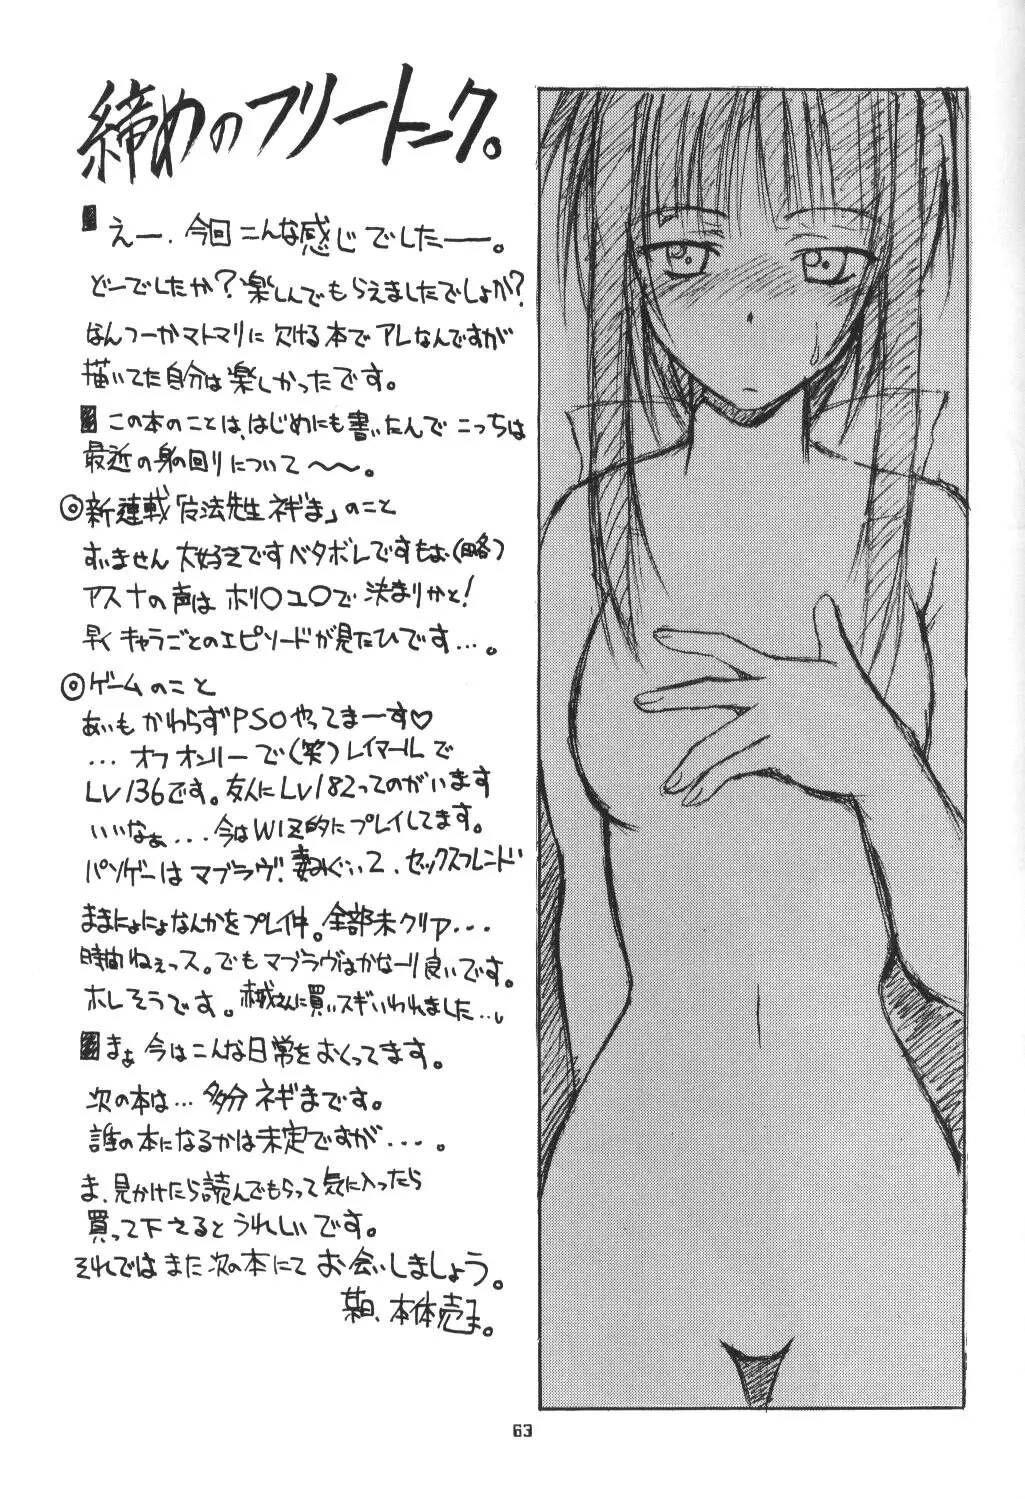 締めのフリートーク。
えー、今回こんな感じでしたー。
どーでしたか?楽しんでもらえましたでしょか?
なんつーかマトマリに欠ける本でアレなんですが
描いてた自分は楽しかったです。
この本のことは、はじめにも書いたんでこっちは
最近の身の回りについて〜〜。
◎新連載「魔法先生ネギま」のこと
すいません大好きですベタボレですもぉ(略)
アスナの声はホリ○ユ○で決まりかと!
早くキャラごとのエピソードが見たひです...。
◎ゲームのこと
あいもかわらずPSOやってまーす♡
...オフオンリーで(笑)レイマールで
LV136です。友人にLV182ってのがいます
いいなぁ...今はWIZ的にプレイしてます。
パソゲーはマブラヴ、妻みぐい2、セックスフレンド
ままにょにょなんかをプレイ中。全部未クリア...
時間ねぇっス。でもマブラヴはかなーり良いです。
ホレそうです。さんに買いスギいわれました...。
まぁ今はこんな日常をおくってます。
次の本は...多分ネギまです。
誰の本になるかは未定ですが...。
ま、見かけたら読んでもらって気に入ったら
買って下さるとうれしいです。
それではまた次の本にてお会いしましょう。
某日、本体売ま。
63